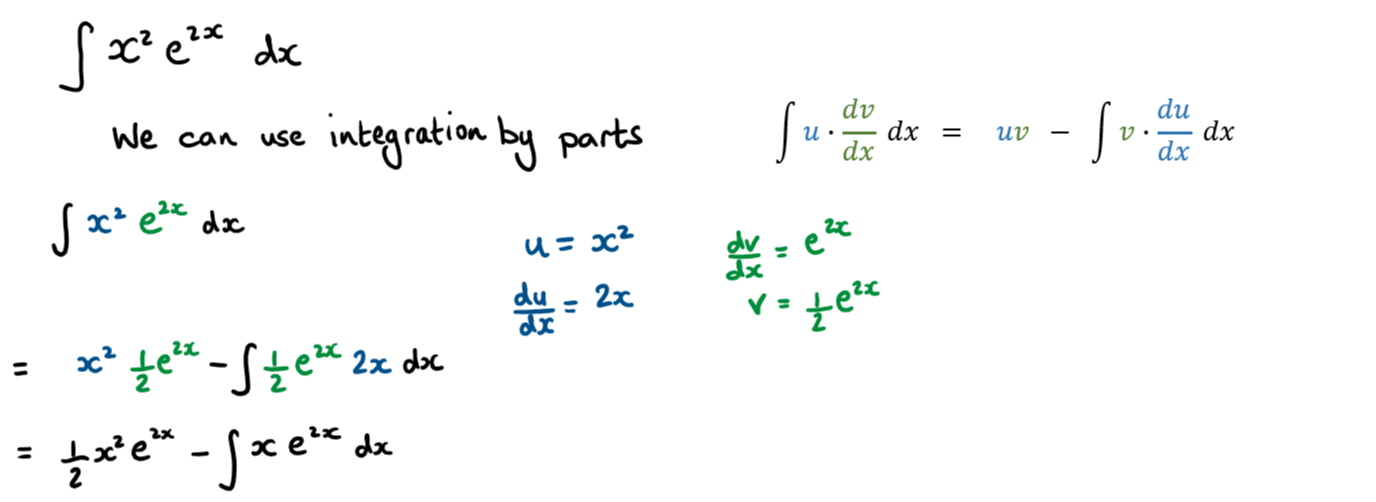 ∫ x² e²ˣ dx
We can use integration by parts
∫ u · dv/dx dx = uv − ∫ v · du/dx dx
∫ x² e²ˣ dx
u = x² dv/dx = e²ˣ
du/dx = 2x v = 1/2 e²ˣ
= x² 1/2 e²ˣ − ∫ 1/2 e²ˣ 2x dx
= 1/2 x² e²ˣ − ∫ x e²ˣ dx